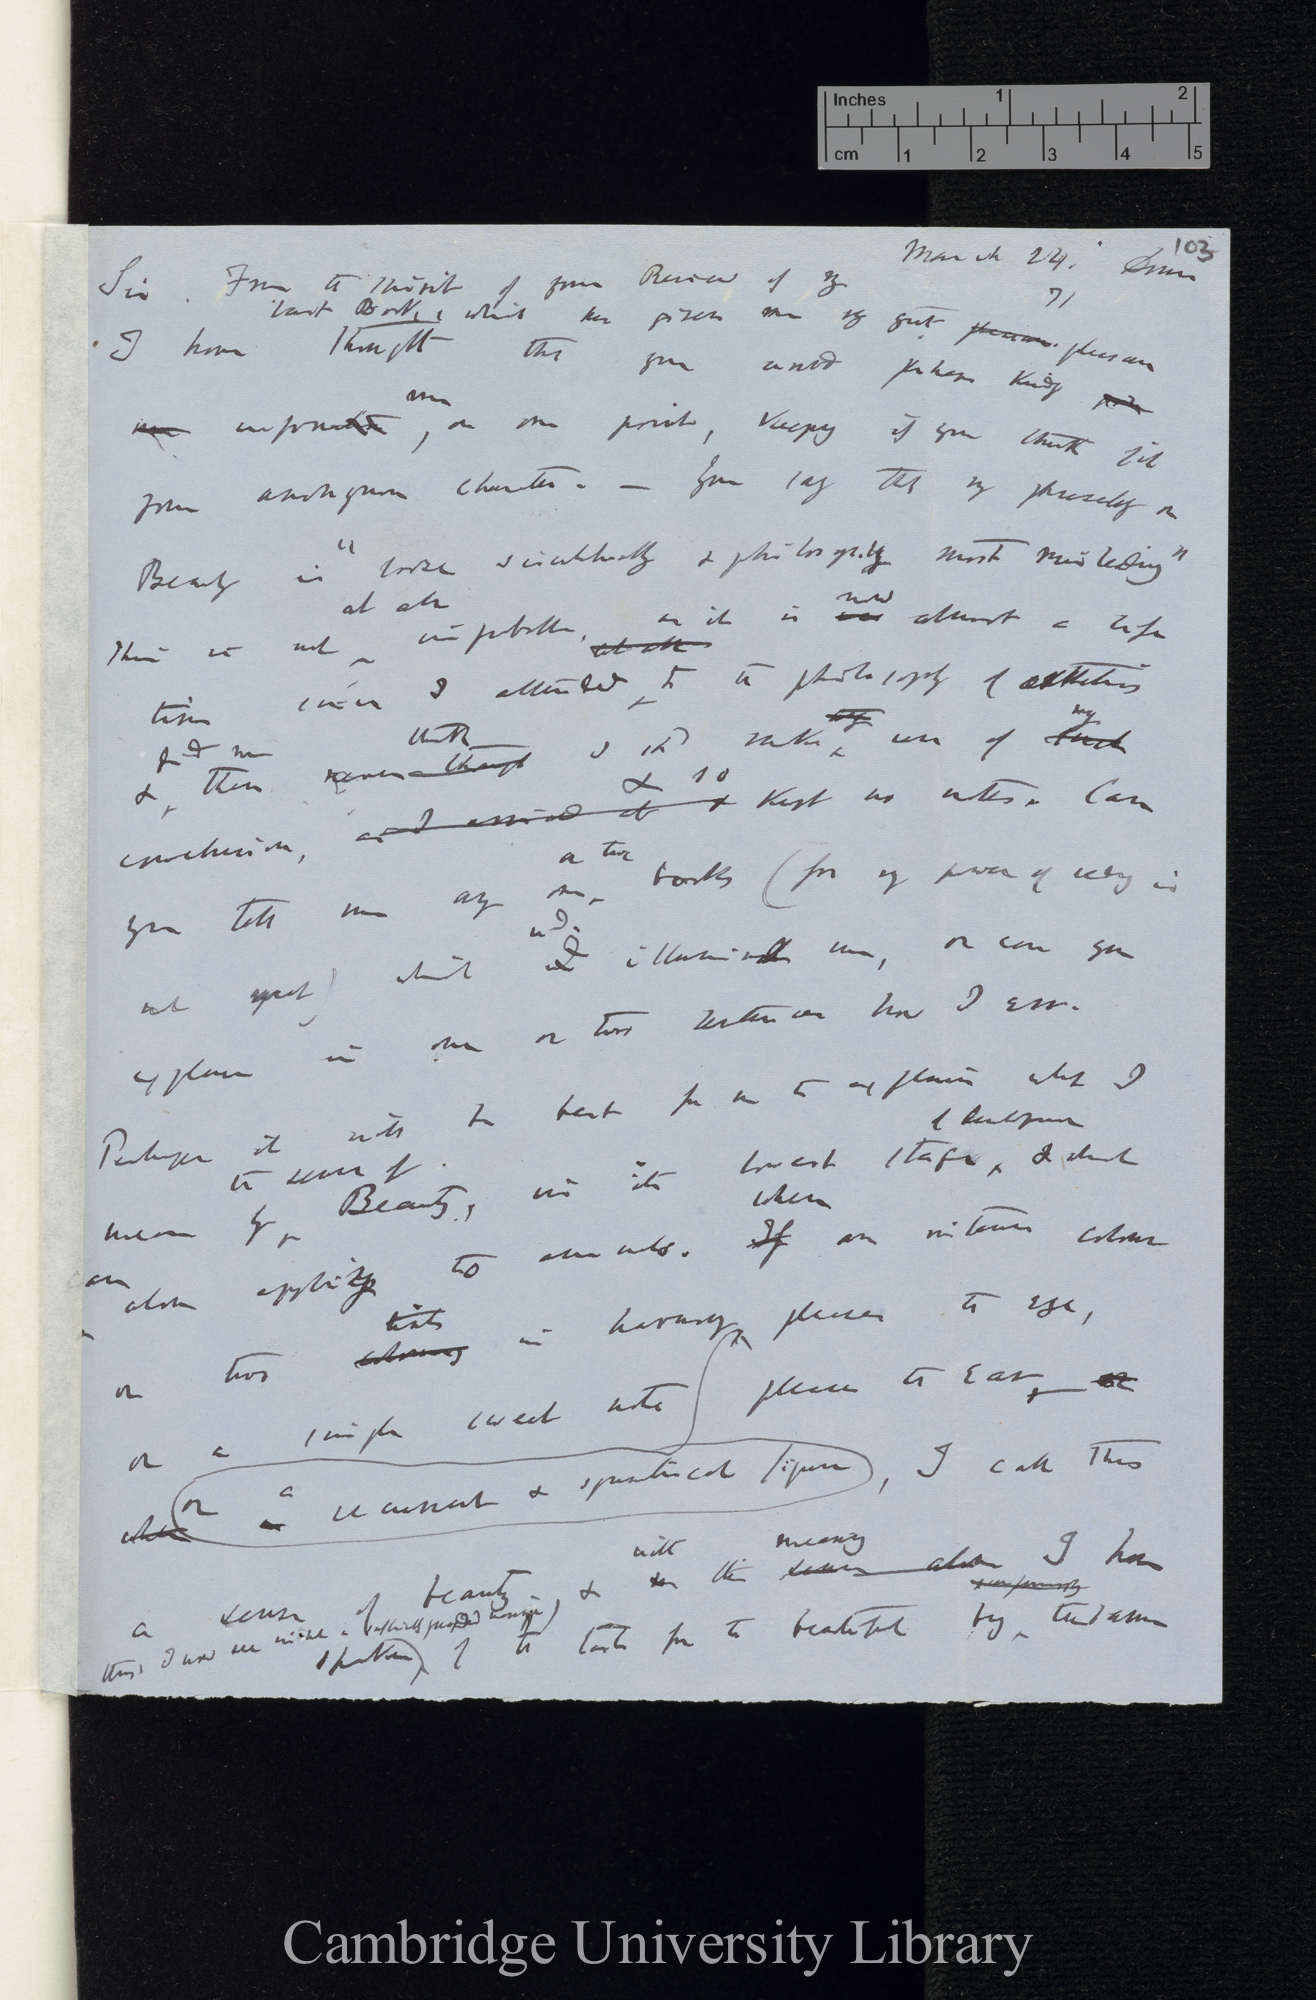 Inches 1 2
cm 1 2 3 4 5
103
March 24. Down
71
Sir. From the spirit of your Review of my
last Book, which has given me very great pleasure
I have thought that you would perhaps kindly
inform me, on one point, keeping if you think fit
your anonymous character. — You say that my phraseology on
Beauty is "loose scientifically & philosophically most misleading"
This is not at all improbable, as it is now almost a life
time since I attended to the philosophy of aesthetics
& did not then think I sh^d make use of my
conclusion, & so kept no notes. Can
you tell me any one or two books (for my power of reading is
not great) which w^d. illuminate me, or can you
explain in one or two sentences how I err.
Perhaps it will be best for me to explain what I
mean by the sense of Beauty, in its lowest stage of development, & which
can alone apply to animals. When an intense colour
or two tints in harmony please the eye,
or a single sweet note please the ear,
or a recurrent & symmetrical figure, I call this
a sense of beauty, & with this meaning I have
spoken of the taste for the beautiful by the same